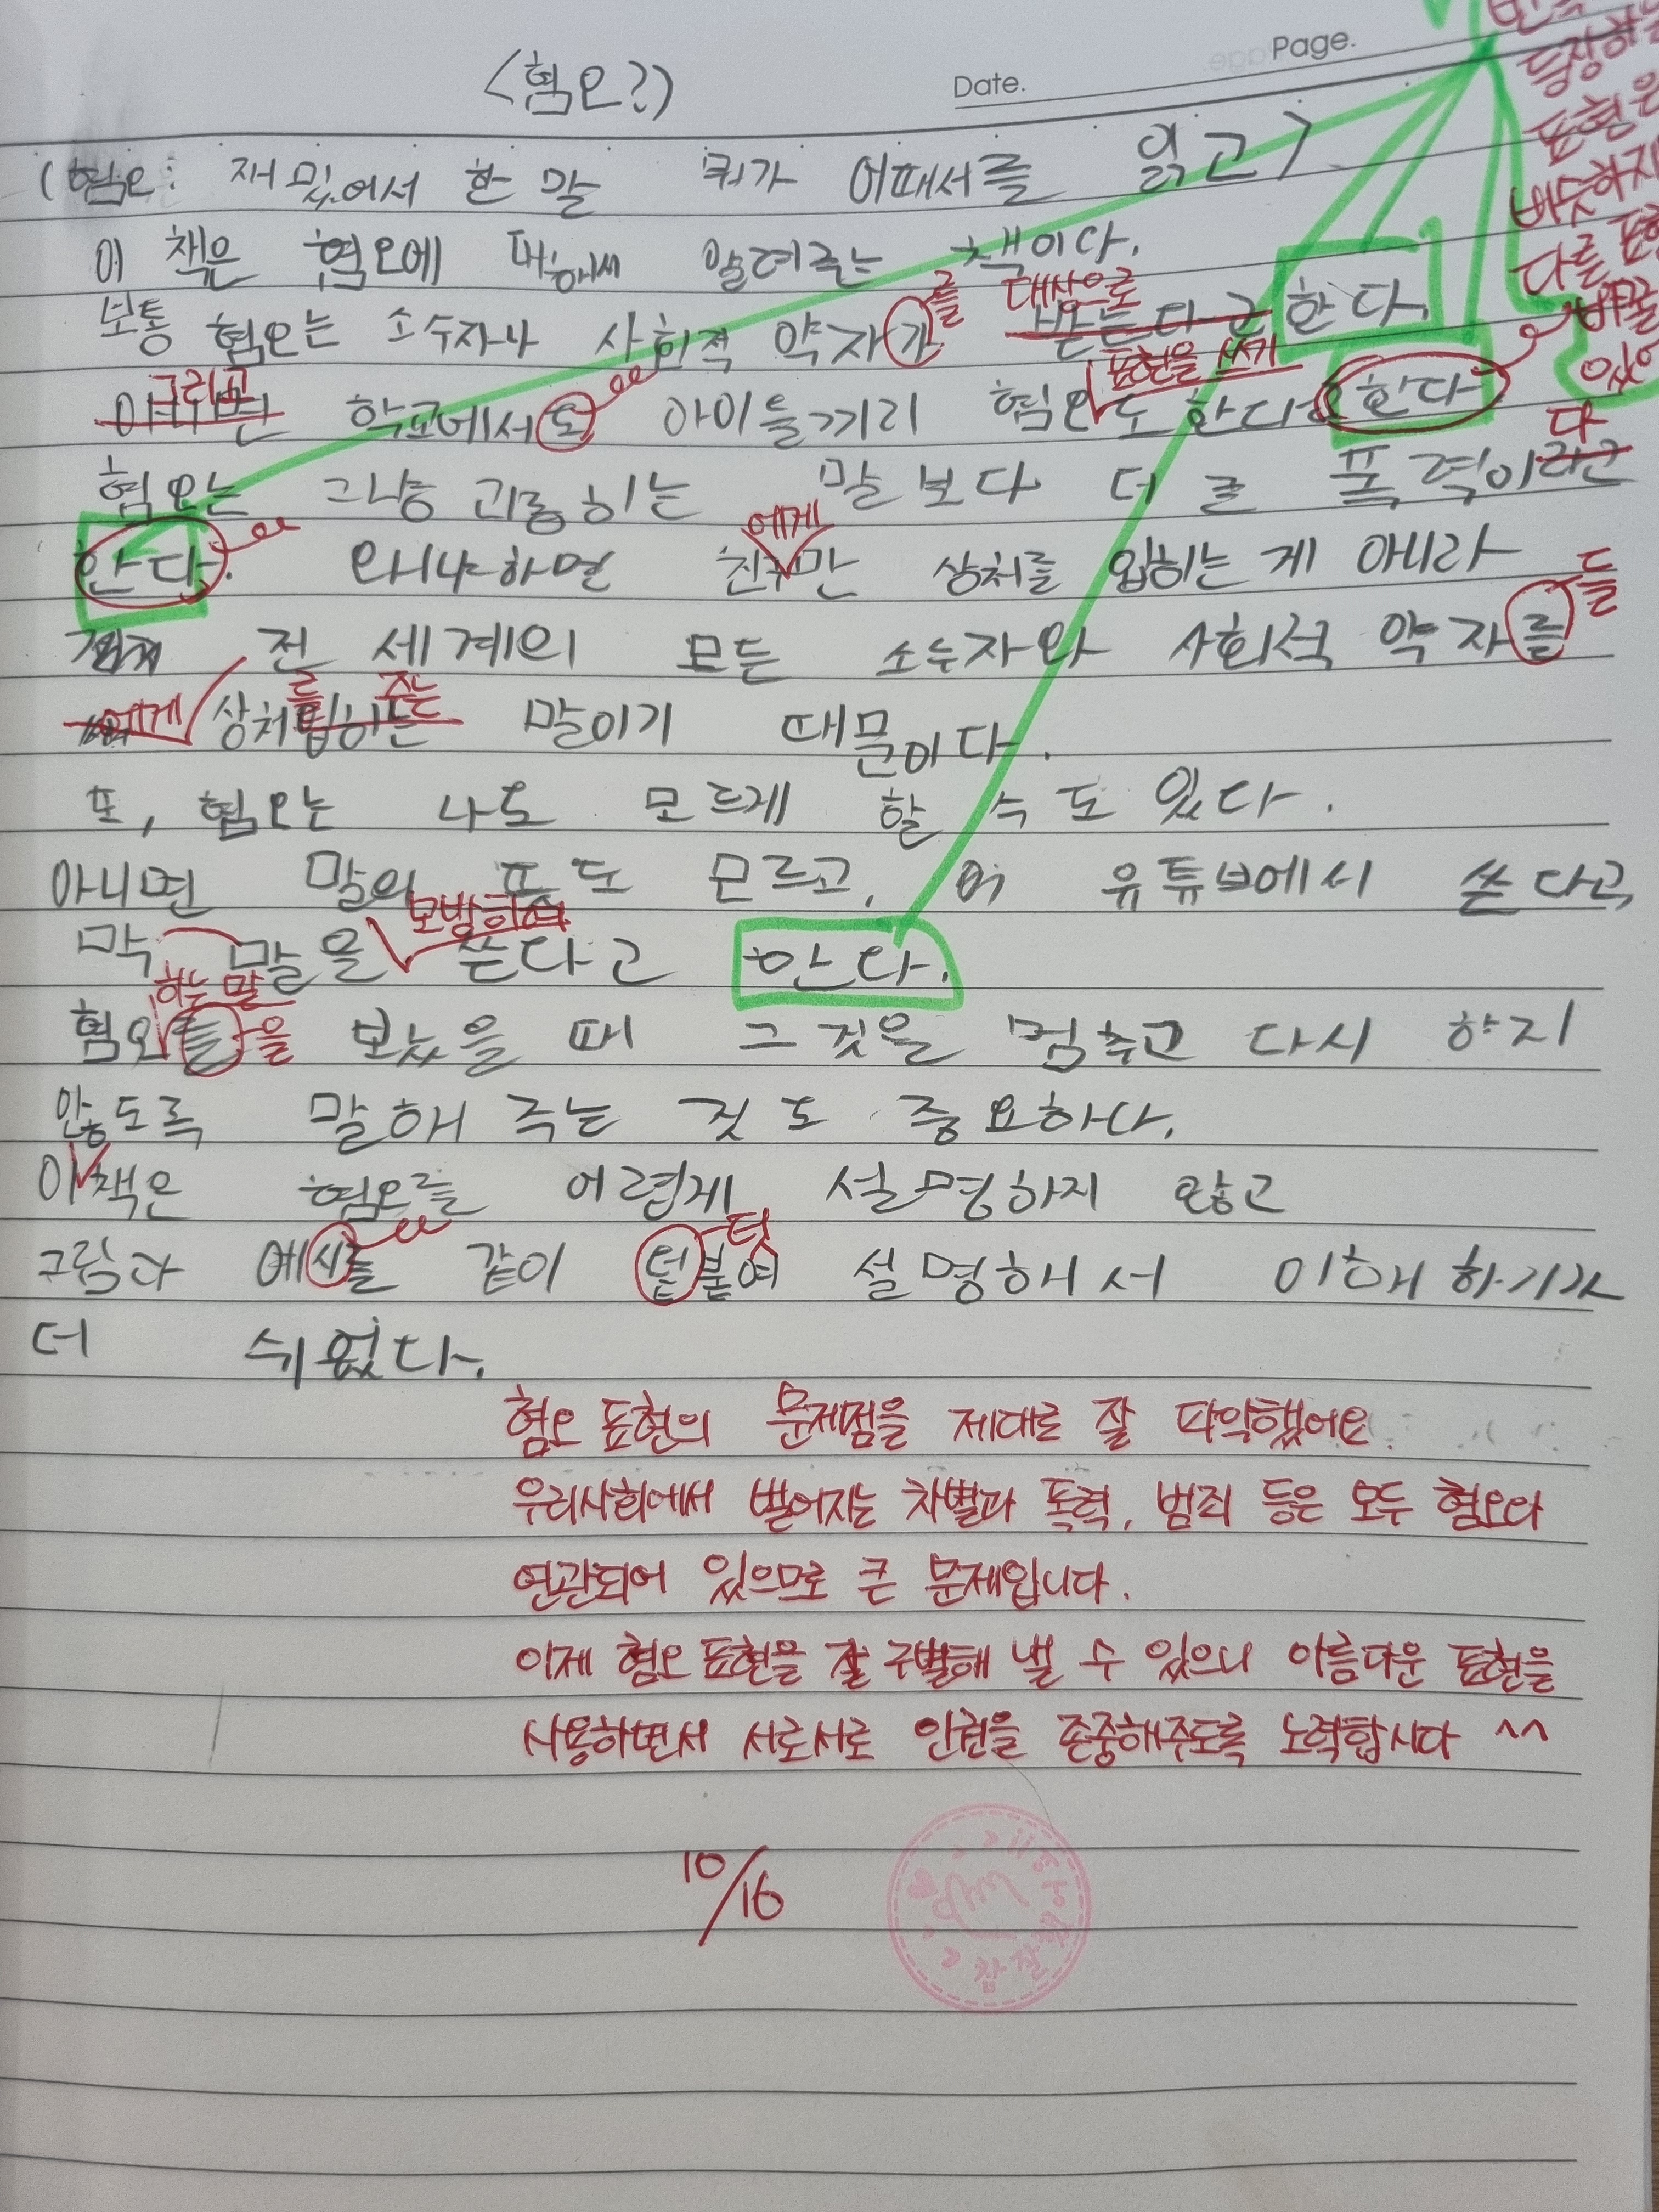 <혐오?>
Date.
Page.
(혐오: 재밌어서 한 말 뭐가 어때서를 읽고>
이 책은 혐오에 대해서 알려주는 책이다.
를 대상으로
보통 혐오는 소수자나 사회적 약자가 받는다고 한다.
그리고 표현을 쓰기
아니면 학교에서도 아이들끼리 혐오도 한다고 한다
다
혐오는 그냥 괴롭히는 말보다 더 큰 폭력이라고
에게
한다. 왜냐하면 친구만 상처를 입히는 게 아니라
들
전 세계의 모든 소수자와 사회적 약자를
에게 를 주는
상처입히는 말이기 때문이다.
또, 혐오는 나도 모르게 할 수도 있다.
아니면 말의 뜻도 모르고, 유튜브에서 쓴다고
모방하여
막 말을 쓴다고 한다.
하는 말
혐오를 을 보았을 때 그것을 멈추고 다시 하지
않도록 말해 주는 것도 중요하다.
이책은 혐오를 어렵게 설명하지 않고
덧
그림과 예시를 같이 덭붙여 설명해서 이해하기가
더 쉬웠다.
등장하는
표현은
비슷하지
다른
바꿀
혐오 표현의 문제점을 제대로 잘 파악했어요.
우리사회에서 벌어지는 차별과 폭력, 범죄 등은 모두 혐오와
연관되어 있으므로 큰 문제입니다.
이제 혐오 표현을 잘 구별해 낼 수 있으니 아름다운 표현을
사용하면서 서로서로 인권을 존중해주도록 노력합시다 ^^
10/16
참 잘